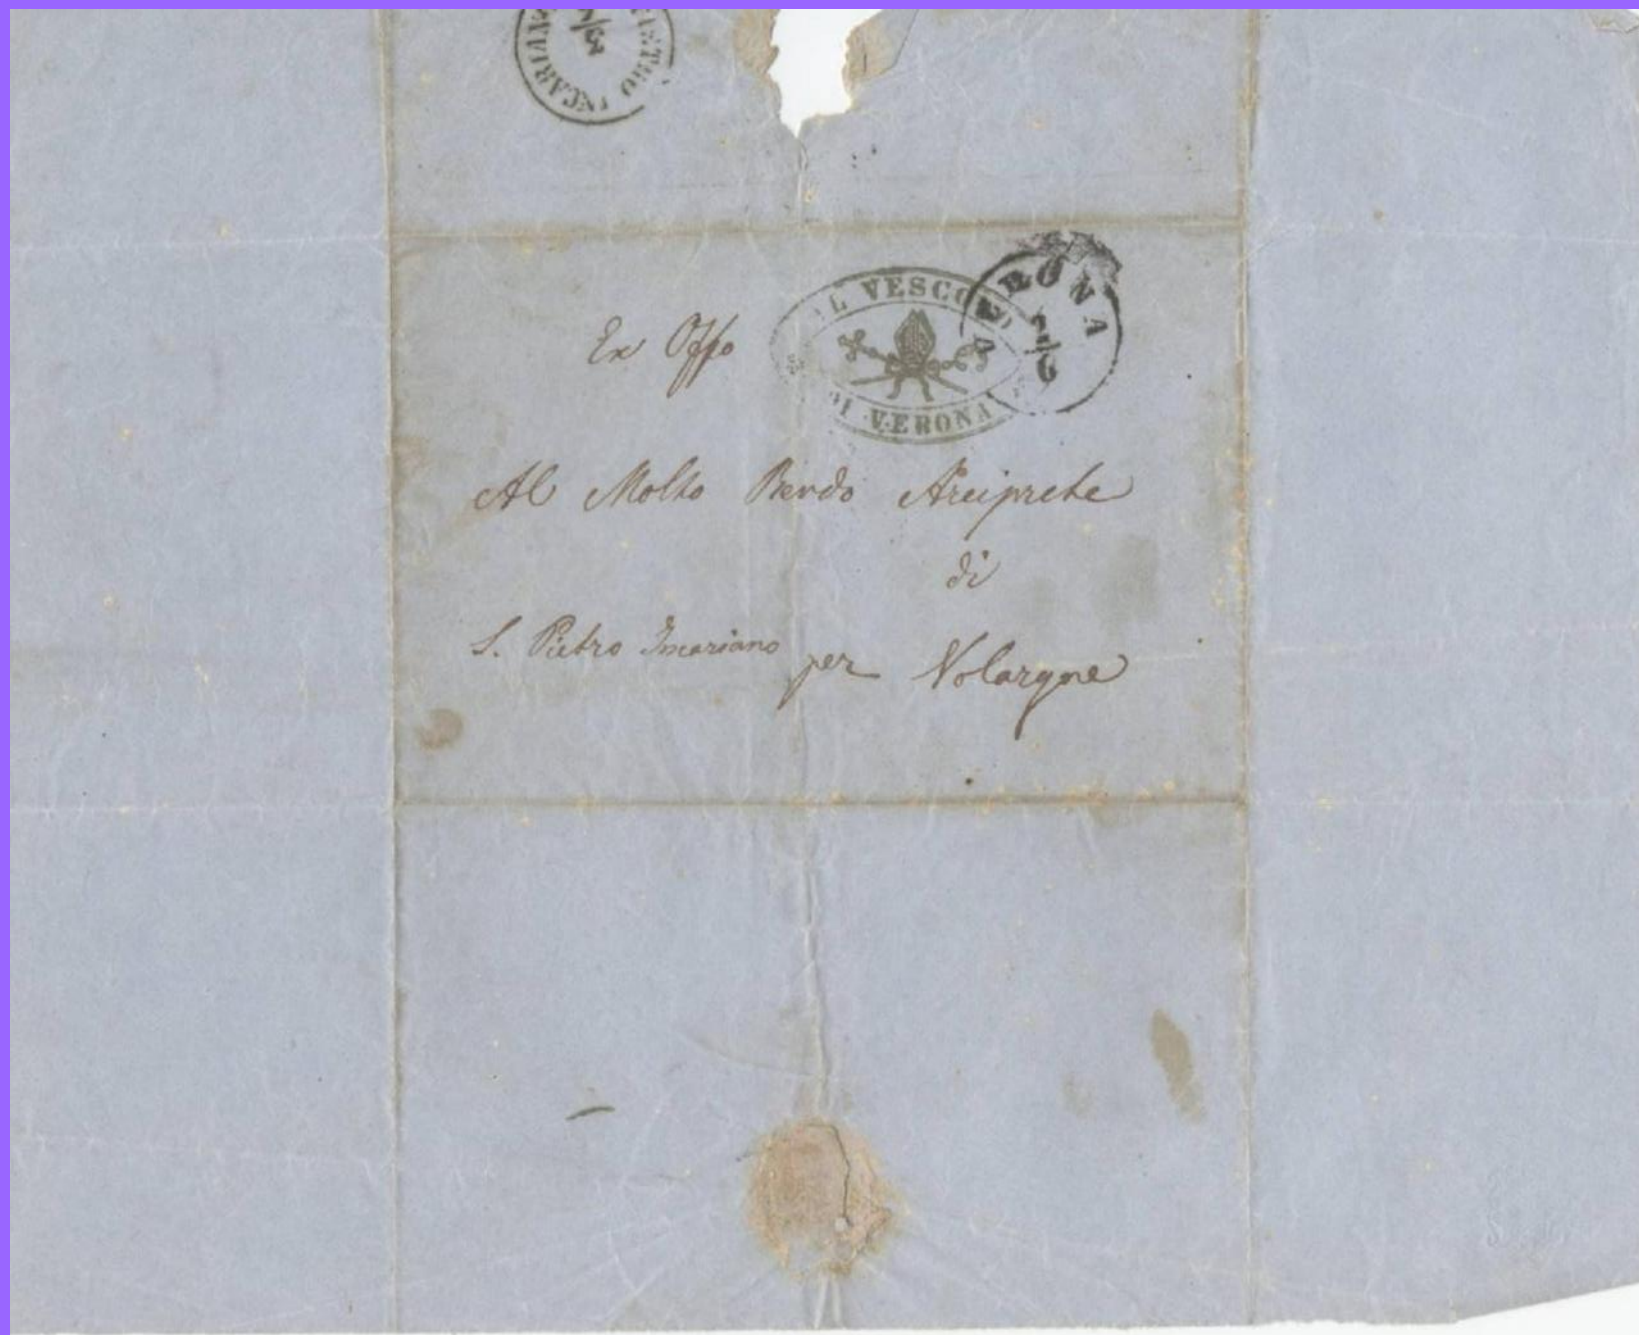 PIETRO INCARIAN
IL VESCO
DI VERONA
VERONA
2/6
Ex Offo
Al Molto Revdo Arciprete
di
S. Pietro Incariano
per Volargne